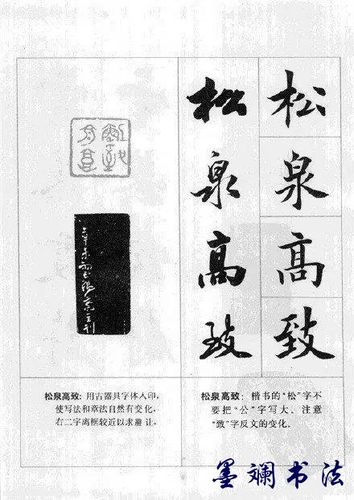 松泉高致
松泉高致
松泉高致：楷书的“松”字不
要把“公”字写大、注意
“致”字反文的变化.
松泉高致：用古器具字体入印，
使写法和章法自然有变化，
右二字离框较近以求避让，
墨斓书法